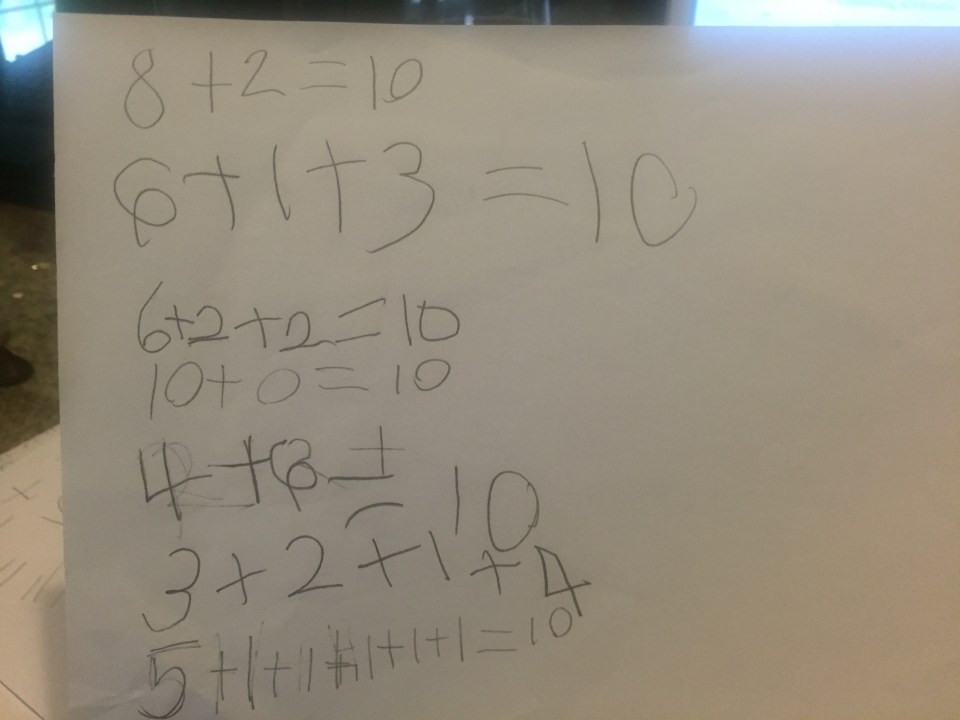 8+2=10
6+1+3=10
6+2+2=10
10+0=10
4+6=10
3+2+1+4
5+1+1+1+1+1=10